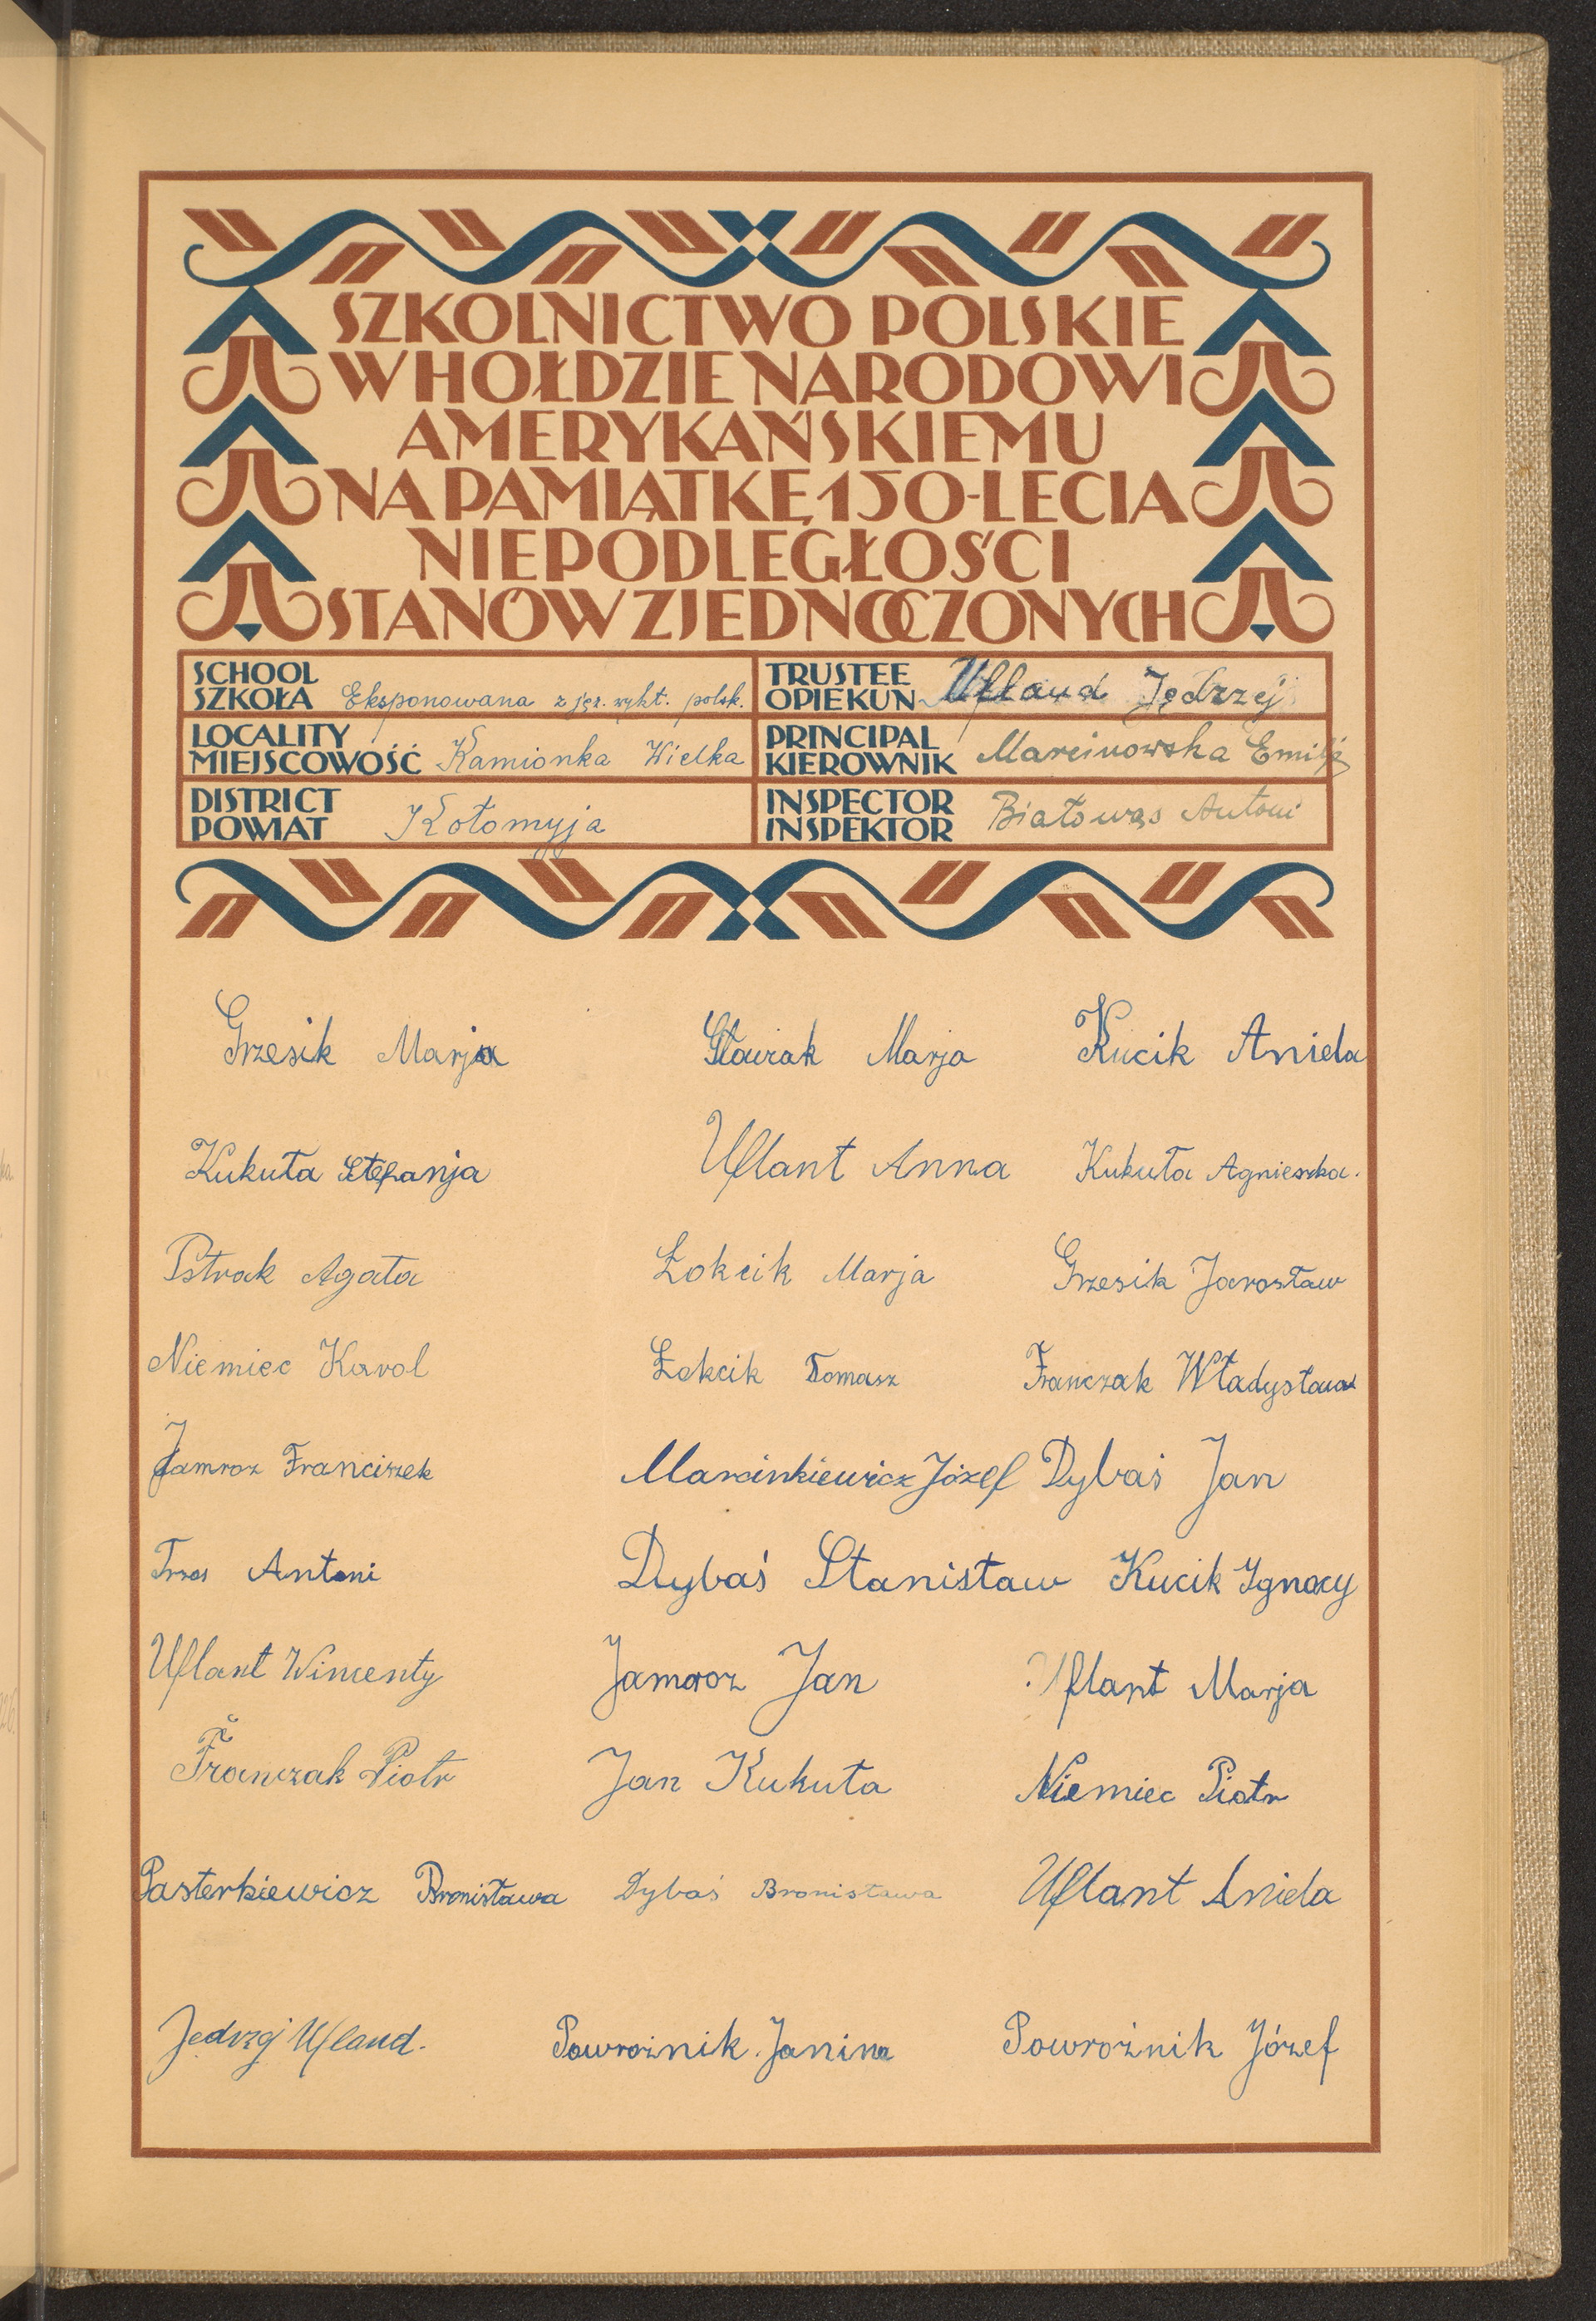 SZKOLNICTWO POLSKIE
W HOŁDZIE NARODOWI
AMERYKAŃSKIEMU
NA PAMIĄTKĘ 150-LECIA
NIEPODLEGŁOŚCI
STANÓW ZJEDNOCZONYCH
SCHOOL
SZKOŁA Eksponowana z jęz. wykł. polsk.
TRUSTEE
OPIEKUN Ufland Jędrzej
LOCALITY
MIEJSCOWOŚĆ Kamionka Wielka
PRINCIPAL
KIEROWNIK Marcinowska Emilja
DISTRICT
POWIAT Kołomyja
INSPECTOR
INSPEKTOR Białowąs Antoni
Grzesik Marja Marja Kucik Aniela
Kukuła Stefanja Uflant Anna Kukuła Agnieszka.
Pstrak Agata Łokcik Marja Grzesik Jarosław
Niemiec Karol Łokcik Tomasz Franczak Władysława
Jamroz Franciszek Marcinkiewicz Józef Dybaś Jan
Trzos Antoni Dybaś Stanisław Kucik Ignacy
Uflant Wincenty Jamroz Jan Uflant Marja
Franczak Piotr Jan Kukuła Niemiec Piotr
Pasterkiewicz Bronisława Dybaś Bronisława Uflant Aniela
Jędrzej Ufland. Powroźnik Janina Powroźnik Józef